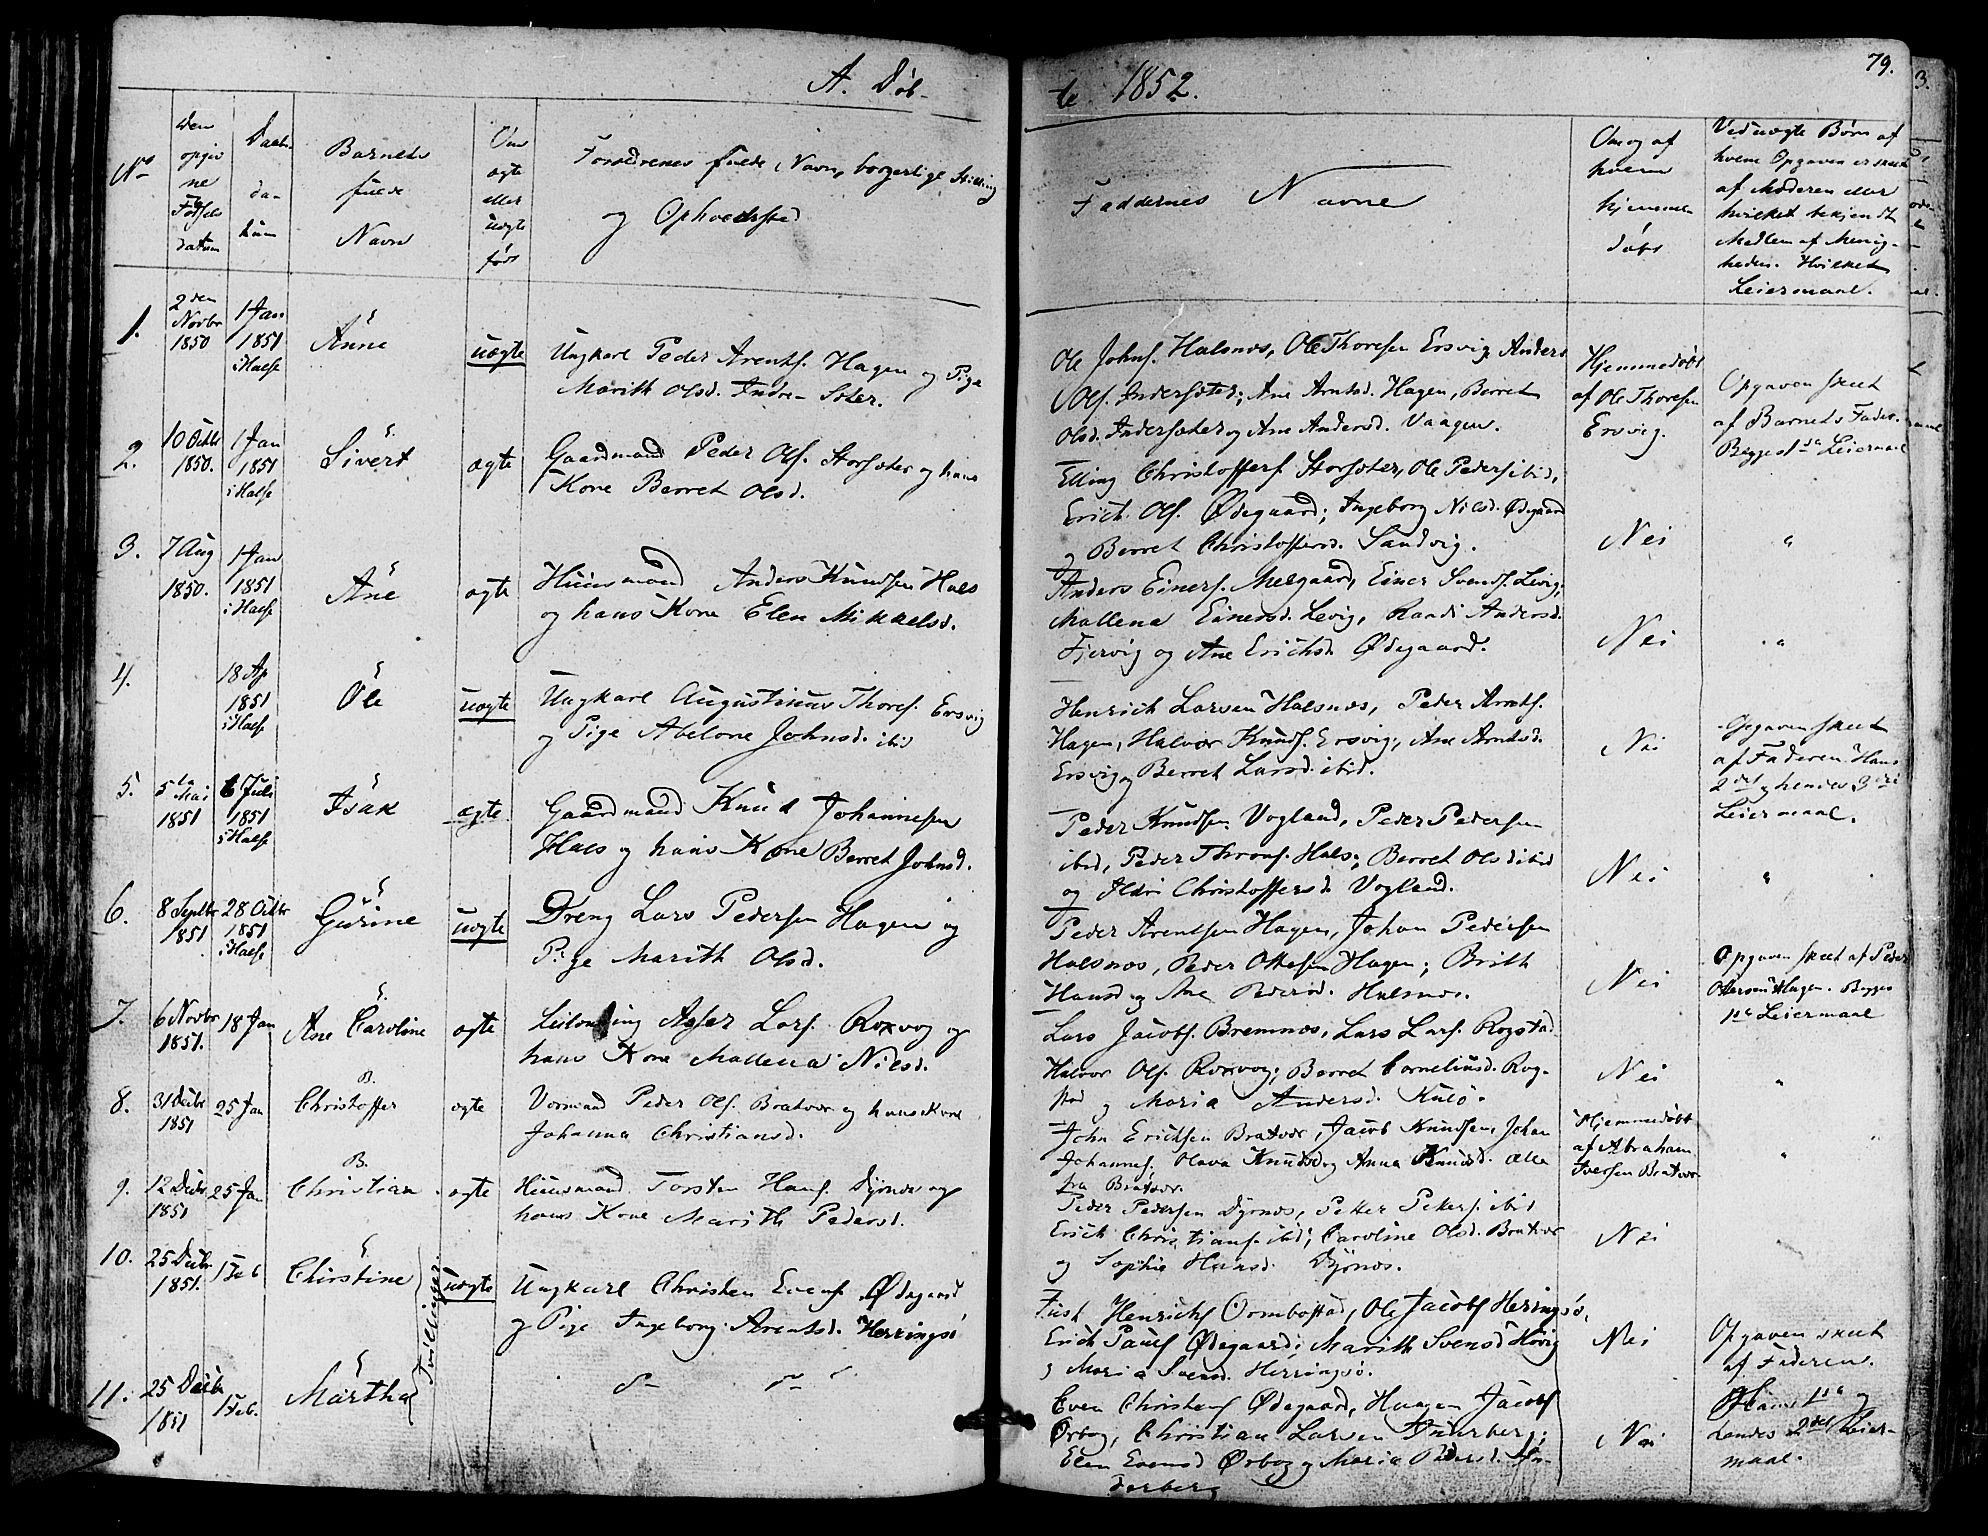 A. Døb-
te 1852.
79.
No
Den opgivne Fødsels datum
Daabs datum
Barnets fulde Navn
Om ægte eller uægte født
Forældrenes fulde Navn, borgerlige Stilling
og Opholdssted
Faddernes Navne
Om og af hvem hjemmedøbt
Ved uægte Børn af
hvem Opgaven er skeet
af Moderen eller
hvilket bekjendt
Medlem af Menig-
heden. Hvilket
Leiermaal.
1.
2den Novbr 1850
1 Jan 1851 i Halse
Ane
uægte
Ungkarl Peder Arents. Hagen og Pige
Marith Olsd. Indre-Sæter.
Ole Johns. Halsnæs, Ole Thoresen Ersvig, Anders
Ols. Indersæter; Ane Arntsd. Hagen, Berret
Olsd. Indersæter og Ane Andersd. Vaagen.
Hjemmedøbt
af Ole Thoresen
Ersvig.
Opgaven skeet
af Barnets Fader.
Begges 1ste Leiermaal
2.
10 Octbr 1850.
1 Jan 1851 i Halse
Sivert
ægte
Gaardmand Peder Ols. Storsæter og hans
Kone Berret Olsd.
Elling Christoffers. Storsæter, Ole Peders. ibid,
Erich Ols. Ødegaard; Ingeborg Nilsd. Ødegaard
og Berret Christoffersd. Sandvig.
Nei
"
3.
7 Aug 1850.
1 Jan 1851 i Halse
Ane
ægte
Huusmand Anders Knudsen Hals
og hans Kone Elen Mikkelsd.
Anders Einers. Melgaard, Einer Svends. Levig;
Mallena Einersd. Levig, Randi Andersd.
Fjervig og Ane Erichsd. Ødegaard.
Nei
"
4.
18 Ap 1851 i Halse
Ole
uægte
Ungkarl Augustinus Thores. Ersvig
og Pige Abelone Johnsd. ibid
Henrich Larsen Halsnæs, Peder Arnts.
Hagen, Halvor Knuds. Ersvig, Ane Arntsd.
Ersvig og Berret Larsd. ibid.
Nei
Opgaven skeet
af Faderen. Hans
2det og hendes 3die
Leiermaal.
5.
5te Mai 1851
6 Juli 1851 i Halse
Isak
ægte
Gaardmand Knud Johannesen
Hals og hans Kone Berret Johnsd.
Peder Knudsen Vogland, Peder Pedersen
ibid, Peder Throns. Hals; Berret Olsd ibid
og Ildri Christoffersd. Vogland.
Nei
"
6.
8 Septbr 1851
28 Octbr 1851 i Halse
Gurine
uægte
Dreng Lars Pedersen Hagen og
Pige Marith Olsd.
Peder Arentsen Hagen, Johan Pedersen
Halsnæs, Peder Ottesen Hagen; Brith
Hansd og Ane Pedersd. Halsnæs.
Nei
Opgaven skeet af Peder
Ottersen Hagen. Begges
1ste Leiermaal
7.
6 Novbr 1851.
18 Jan
Ane Caroline
ægte
Leilending Asser Lars. Roxvog og
hans Kone Mallena Nilsd.
Lars Jacobs. Bremnæs, Lars Lars. Rogstad
Halvor Ols. Roxvog; Berret Corneliusd. Rog-
stad og Maria Andersd. Kulø.
Nei
"
8.
31 Decbr 1851
25 Jan
B.
Christoffer
ægte
Vormand Peder Ols. Bratvær og hans Kone
Johanna Christiansd.
John Erichsen Bratvær, Jacob Knudsen, Johan
Johannes. Olava Knudsd og Anna Knudsd. alle
fra Bratvær.
Hjemmedøbt
af Abraham
Iversen Bratvær
"
9.
12 Decbr 1851
25 Jan
B.
Christian
ægte
Huusmand Torsten Hans. Dyrnæs og
hans Kone Marith Pedersd.
Peder Pedersen Dyrnæs, Petter Petters. ibid
Erich Christians. ibid; Caroline Olsd. Bratvær
og Sophie Hansd. Dyrnæs.
Nei
10.
25 Decbr 1851.
1 Feb
Christine
Tvillinger
uægte
Ungkarl Christen Evens. Ødegaard
og Pige Ingeborg Arentsd. Herringsø
Just Henrichs Ormbostad, Ole Jacobs Herringsø,
Erich Pauls Ødegaard; Marith Svensd Høvig
og Maria Svensd. Herringsø.
Nei
Opgaven skeet
af Faderen.
Hans 1ste og
hendes 2det Leier-
maal.
11.
25 Decbr 1851
1 Feb.
Martha
Even Christens Ødegaard, Haagen Jacobs
Ørbog, Christian Larsen Inderberg;
Elen Evensd Ørbog og Maria Pedersd. In-
derberg
Nei